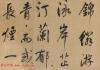 錦鱗游
泳岸芷
汀蘭郁
青而或
長煙一